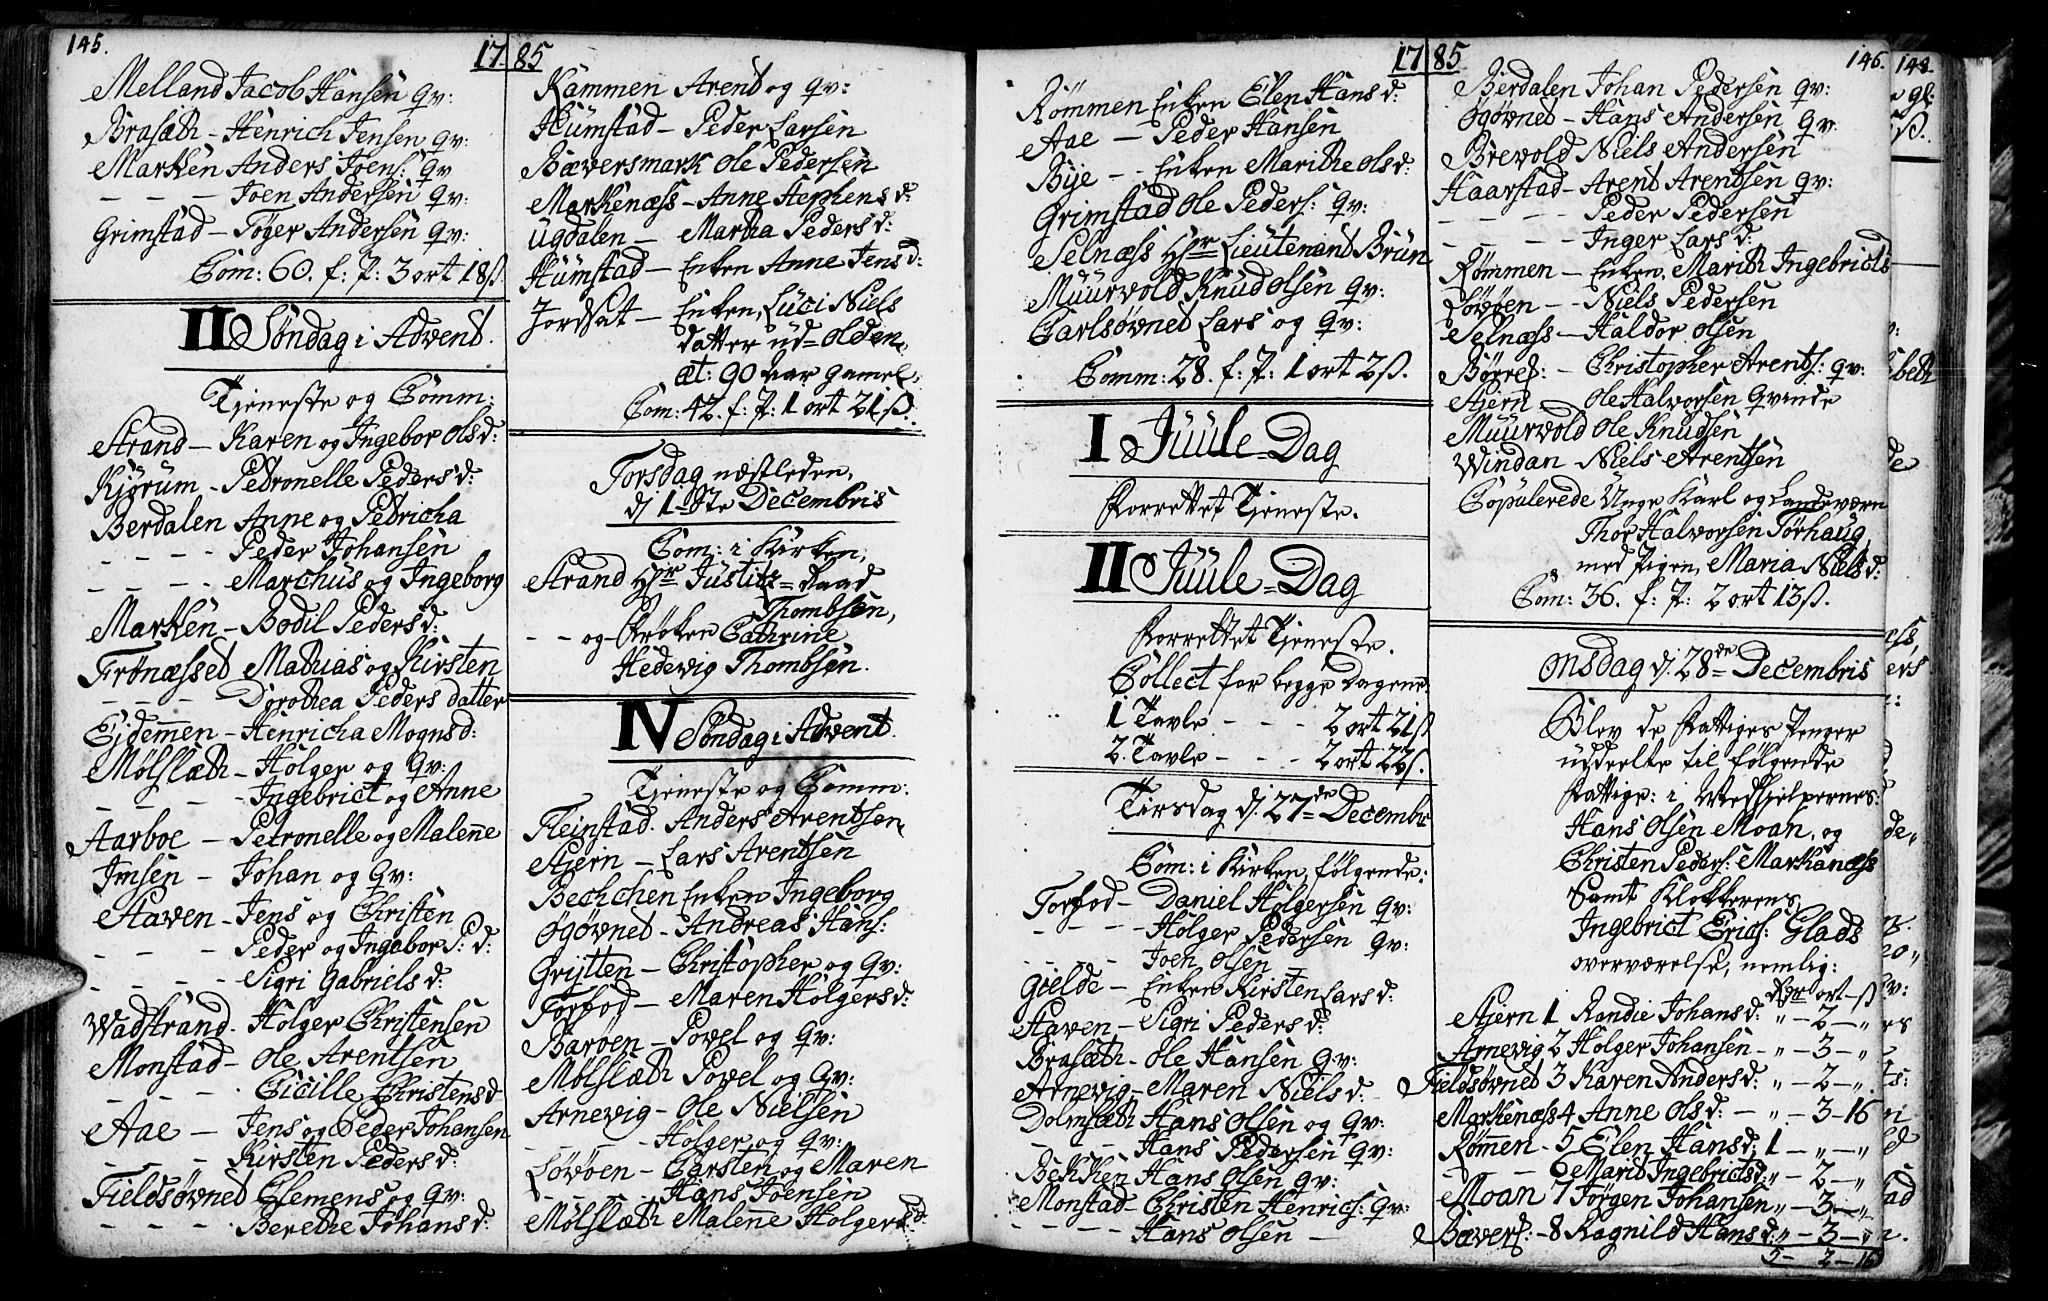 145.
1785
Melland Jacob Hansen Qv:
Brasæth - Henrich Jensen Qv:
Marken Anders Joens: Qv
- - - Joen Andersen Qv:
Grimstad - Tøger Andersen Qv:
Com: 60. f: P: 3 ort 18ß
II Søndag i Advent.
Tjeneste og Comm:
Strand - Karen og Ingebor Olsd:
Kjørum - Petronelle Pedersd:
Berdalen Anne og Petricha
- - - Peder Johansen
- - - Marchus og Ingeborg
Marken - Bodil Pedersd:
Frønæsset Mathias og Kirsten
- - - Dorothea Peders datter
Ejdemmen - Henricha Mognsd:
Mølslæth - Holger og Qv:
- - - Ingebrict og Anne
Aarboe - Petronelle og Malenne
Imsen - Johan og Qv:
Staven - Jens og Christen
- - - Peder og Ingebor P: d:
- - - Sigri Gabrielsd:
Wadstrand. Holger Christensen
Monstad - Ole Arentsen
- - - Cicille Christensd
Aae - Jens og Peder Johansen
- - - Kirsten Pedersd:
Fieldsøvned Clemens og Qv:
- - - Berethe Johansd:
Rammen Arent og Qv:
Humstad - Peder Larsen
Bæversmark Ole Pedersen
Markenæss - Anne Stephensd:
Ugdalen - Martha Pedersd:
Humstad - Enken Anne Jensd:
Jordsat - Enken, Luci Niels
datter ud= Olden,
æt: 90 var gamel,
Com: 42. f: P: 1 ort 21ß.
Torsdag næstleden,
dj 1ste Decembris
Com: i Kirken,
Strand Hr Justitz=Raad
Thombsen,
- - og Frøken Cathrine
Hedevig Thombsen.
IV Søndag i Advent.
Tjeneste og Comm:
Fleinstad. Anders Arentsen,
Stjern - Lars Arentsen
Bechchen Enken Ingeborg
Øgøvned - Andreas Hans:
Grytten - Christopher og Qv:
Forfod - Maren Holgersd:
Barøen - Povel og Qv:
Mølslæth Povel og Qv:
Arnevig - Ole Nielsen
- - - Holger og Qv:
Løvøen - Carsten og Maren
- - - Hans Joensen
Mølslæth Malenne Holgersd:
1785
Rømmen Enken Elen Hansd:
Aae - Peder Hansen
Bye - - Enken Marithe Olsd:
Grimstad Ole Peders: Qv:
Selnæss Hr Lieutenand Brun
Muurvold Knud Olsen Qv:
Carlsøvned Lars og Qv:
Comm: 28. f: P: 1 ort 2ß.
I Juule=Dag
Forrettet Tjeneste.
II Juule=Dag
Forrettet Tjeneste.
Collect for begge Dagene:
1 Tavle - - - 2 ort 21ß
2. Tavle - - - 2 ort 22ß.
Tirsdag dj. 27de Decembr
Com: i Kirken, følgende:
Forfod - Daniel Holgersen Qv:
- - - Holger Pedersen Qv:
- - - Joen Olsen -
Gielde - Enken Kirsten Larsd:
Staven - Sigri Pedersd:
Brasæth - Ole Hansen Qv:
Arnevig - Maren Nielsd:
Dolmsæth Hans Olsen og Qv:
- - - Hans Pedersen Qv:
Bekken Hans Olsen Qv:
Monstad - Christen Henrics: Qv:
- - - Hans Olsen -
146.
Berdalen Johan Pedersen Qv:
Øgøvned - Hans Andersen Qv
Brevold Niels Andersen
Haarstad - Arent Arentsen Qv:
- - - Peder Pedersen
- - - Inger Larsd:
Rømmen - Enken, Marith Ingebricts
Løvøen - - Niels Pedersen
Selnæss - Haldor Olsen
Børres: - Christopher Arents: Qv:
Stjern - Ole Halvorsen Qvinde
Muurvold Ole Knudsen
Windan - Niels Arentsen
Copulerede Unge Karl og Landeværn
Thor Halvorsen Tørhaug,
med Pigen, Maria Nielsd:
Com: 36. f: P: 2 ort 13ß.
Onsdag dj. 28de Decembris
Blev de Fattiges Penger
uddeelte til følgende
Fattige: i Medhjelpernes:
Hans Olsen Moan, og
Christen Peders: Markanæss
Samt Klokkerens
Ingebrict Erics: Glads
overværelse, nemlig:
Rdr ort - ß
Stjern 1 Randie Johansd: " - 2 - "
Arnevig 2 Holger Johansen - " - 3 - "
Fieldsøvned 3 Karen Andersd: " - 2 - "
Markenæss 4 Anne Olsd: - " - 3 - 16
Rømen - 5 Elen Hansd, 1 - " - "
- - 6 Marit Ingebrictsd: " - 2 - "
Moan 7 Jørgen Johansen " - 3 - "
Bævers: - 8 Ragnild Hansd: " - 3 - "
5 - 2 - 16
148.